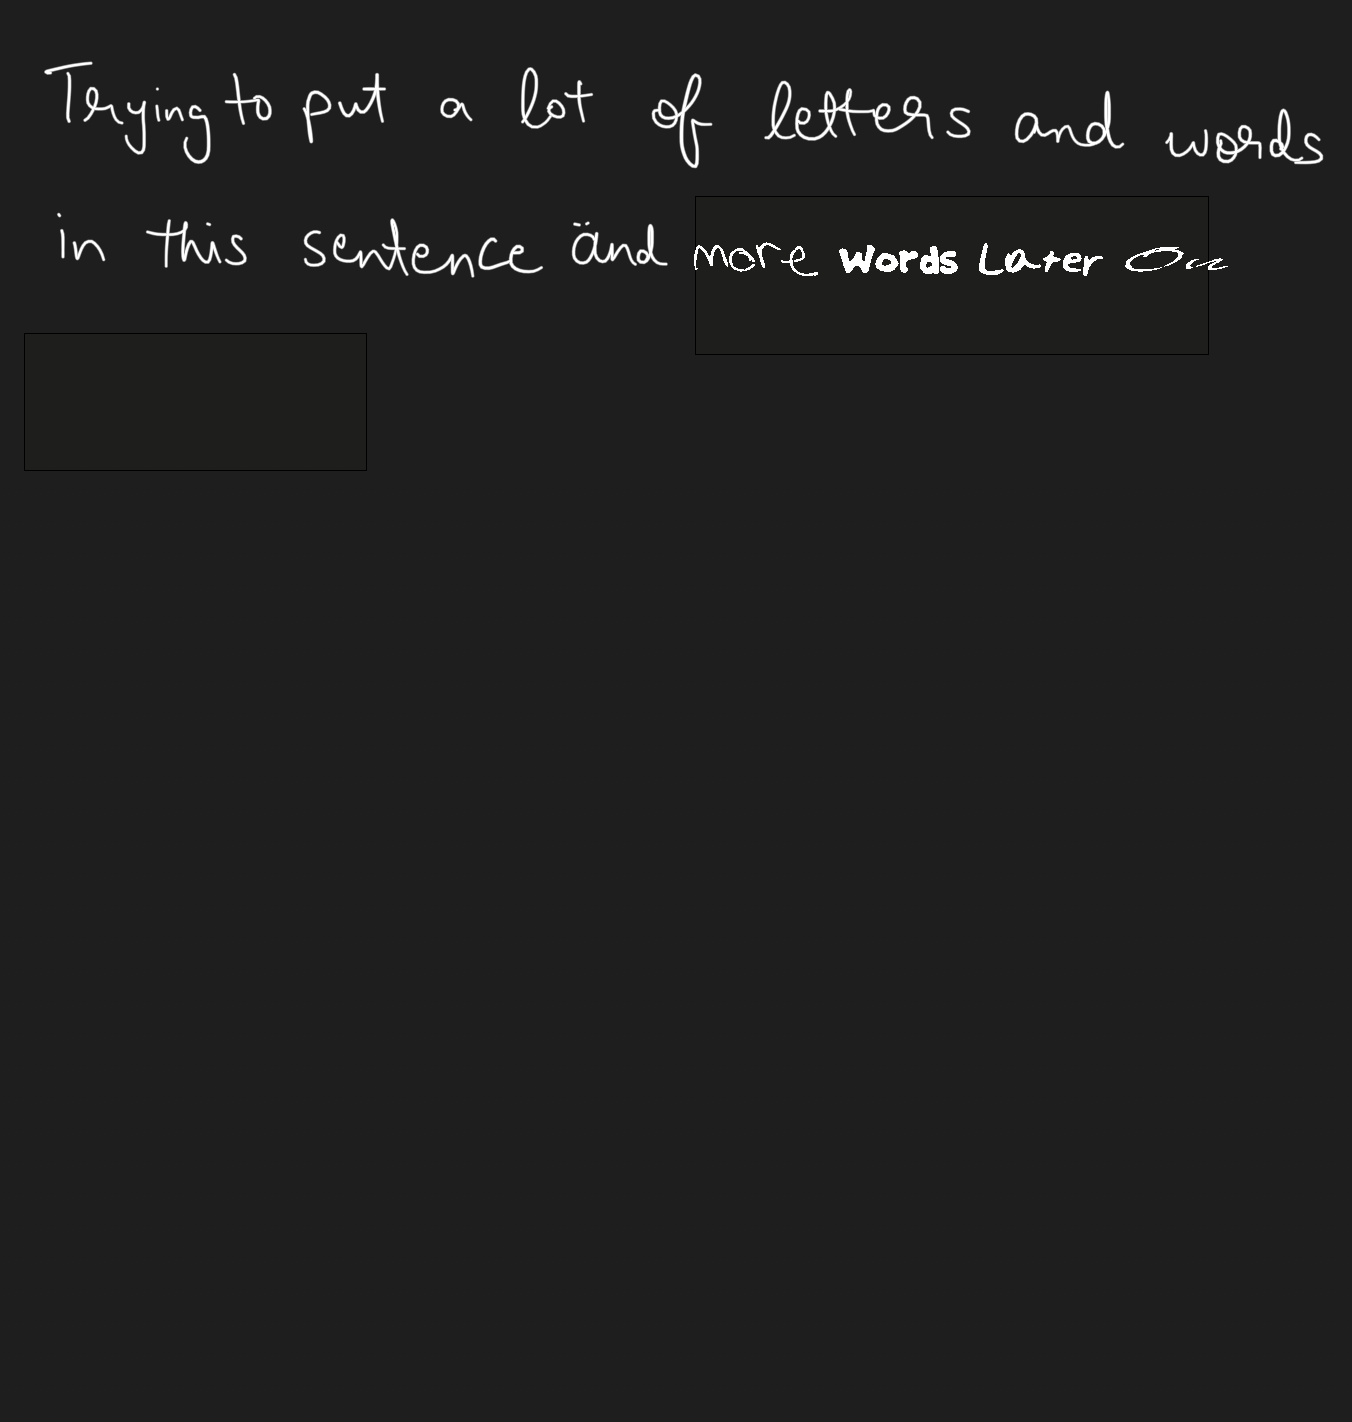 Trying to put a lot of letters and words
in this sentence änd more words Later On